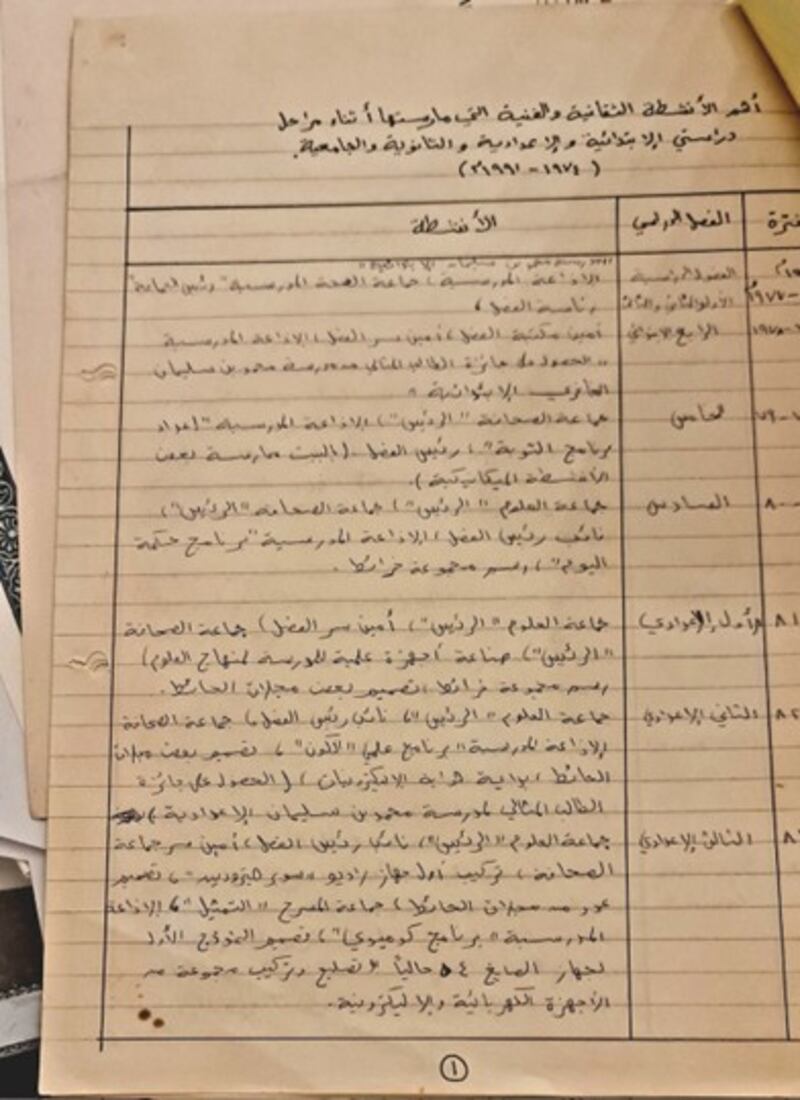 أهم الأنشطة الثقافية والفنية التي مارستها أثناء مراحل
دراستي الابتدائية والاعدادية والثانوية والجامعية.
(١٩٧٤ - ١٩٩١م)
الفصل الدراسي الأنشطة
الفصول الدراسية الاذاعة المدرسية، جماعة الصحة المدرسية "رئيس الجماعة"
الأول والثاني والثالث رئاسة الفصل،
الرابع الابتدائي أمين مكتبة الفصل، أمين سر الفصل، الاذاعة المدرسية
"الحصول على جائزة الطالب المثالي مدرسة محمد بن سليمان
الابتدائية"
خامس جماعة الصحافة "الرئيس"، الاذاعة المدرسية "إعداد
برنامج التوبة"، رئيس الفصل. (البيت ممارسة بعض
الأنشطة الميكانيكية).
السادس جماعة العلوم "الرئيس"، جماعة الصحافة "الرئيس"،
نائب رئيس الفصل، الاذاعة المدرسية "برنامج حكمة
اليوم"، رسم مجموعة خرائط.
الأول الإعدادي جماعة العلوم "الرئيس"، أمين سر الفصل، جماعة الصحافة
"الرئيس"، صناعة أجهزة علمية للمدرسة لمنهاج العلوم،
رسم مجموعة خرائط، تصميم بعض مجلات الحائط.
الثاني الإعدادي جماعة العلوم "الرئيس"، نائب رئيس الفصل، جماعة الصحافة
الإذاعة المدرسية "برنامج علمي "الكون"، تصميم بعض مجلات
الحائط، بداية هواية الاليكترونيات، (الحصول على جائزة
الطالب المثالي لمدرسة محمد بن سليمان الإعدادية)
الثالث الإعدادي جماعة العلوم "الرئيس"، نائب رئيس الفصل، أمين سر جماعة
الصحافة، تركيب أول جهاز راديو "سوبر هيترودين"، تصميم
عدد من مجلات الحائط، جماعة المسرح "التمثيل"، الإذاعة
المدرسية "برنامج كوميدي"، تصميم النموذج الأول
لجهاز حالياً، تصليح وتركيب مجموعة من
الأجهزة الكهربائية والإليكترونية.
١